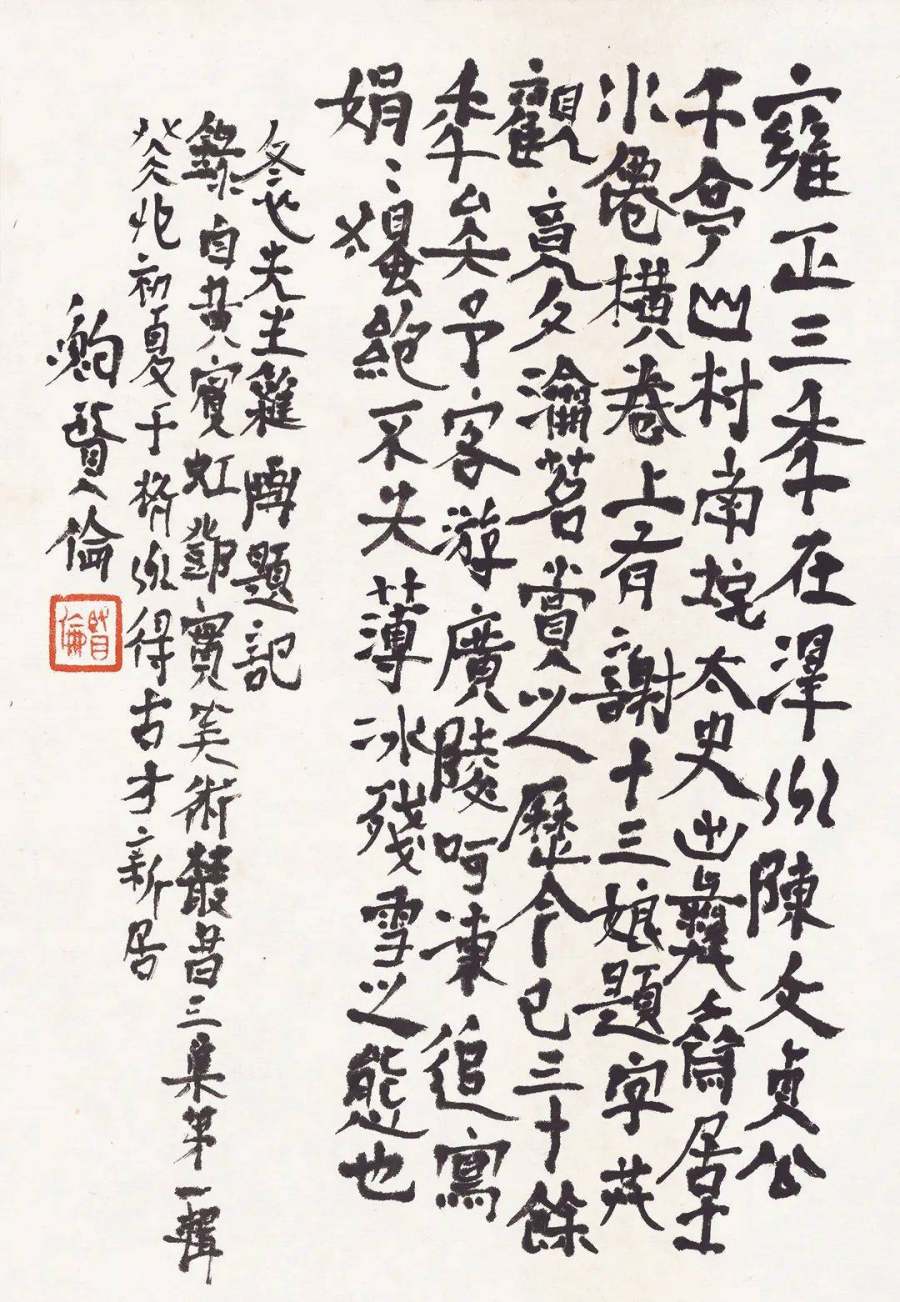 雍正三年在澤州陳文貞公
午亭山村南垞太史出彝齋居士
水僊橫卷上有謝十三娘題字共
觀竟夕瀹茗賞之歷今已三十餘
年矣予客游廣陵呵凍追寫
娟〻絕不失薄冰殘雪之態也
冬心先生雜畫題記
錄自黃賓虹鄧實美術叢書三集第一輯
癸卯初夏于杭州得古才新居
鮑賢倫
賢倫